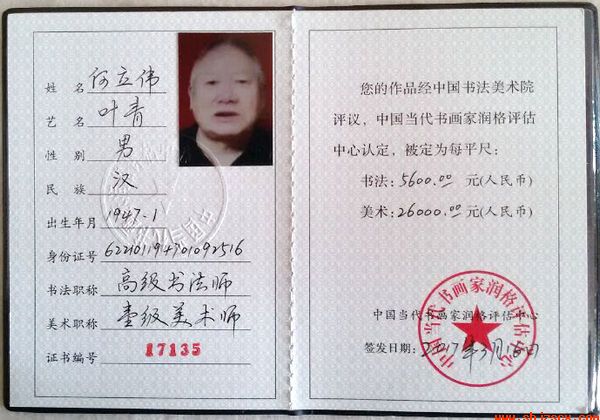 姓 名 何立伟
艺 名 叶青
性 别 男
民 族 汉
出生年月 1947-1
身份证号
书法职称 高级书法师
美术职称 壹级美术师
证书编号 17135
您的作品经中国书法美术院
评议，中国当代书画家润格评估
中心认定，被定为每平尺：
书法：5600.00 元(人民币)
美术：26000.00 元(人民币)
中国当代书画家润格评估中心
中国当代书画家润格评估中心
签发日期：2017年3月18日